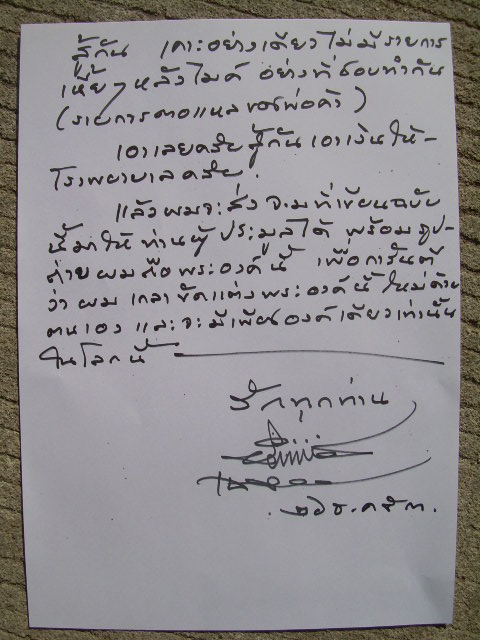 สู้กัน เคาะอย่างเดียวไม่มีรายการ
เหี้ยๆ หลังไมค์ อย่างที่ชอบทำกัน
(รายการตอแหลของพ่อค้า)
เอาเลยครับ สู้กัน เอาเงินให้-
โรงพยาบาลครับ.
แล้วผมจะส่ง จ.ม ที่เขียนฉบับ
นี้มาให้ท่านผู้ประมูลได้ พร้อมรูป-
ถ่ายผมถือพระองค์นี้ เพื่อการันตี
ว่าผม เกลาขัดแต่งพระองค์นี้ใหม่ด้วย
ตนเอง และจะมีเพียงองค์เดียวเท่านั้น
ในโลกนี้
รักทุกท่าน